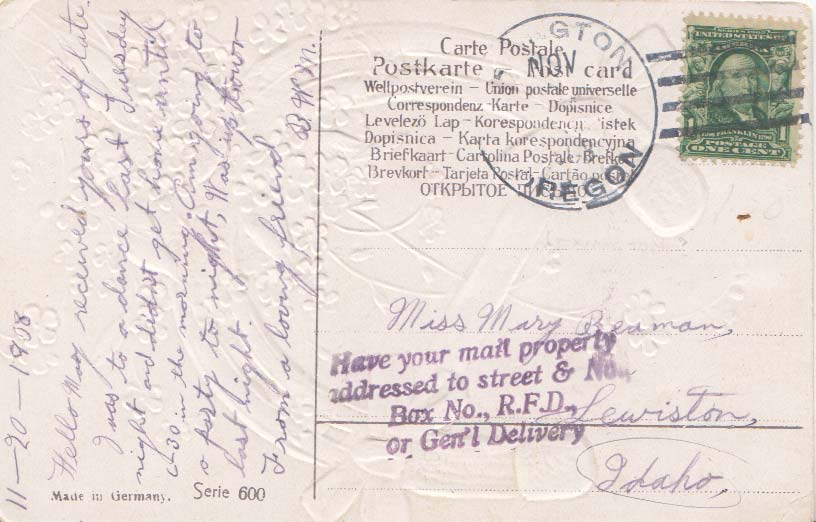 11-20-1908
Hello May received yours of late.
I was to a dance last Tuesday
night and didn't get home until
6-30 in the morning. Am going to
a party to-night, Was up town
last night.
From a loving friend
B. W. M.
Made in Germany. Serie 600
Carte Postale
Postkarte - Post card
Weltpostverein - Union postale universelle
Correspondenz-Karte - Dopisnice
Levelező Lap - Korespondencni listek
Dopisnica - Karta korespondencyjna
Briefkaart - Cartolina Postale - Brefkort
Brevkort - Tarjeta Postal - Cartão postal
ОТКРЫТОЕ ПИСЬМО
GTON
NOV
OREGON
SERIES 1902
UNITED STATES OF AMERICA
1 1
POSTAGE
ONE CENT
Miss Mary Beaman,
Have your mail property
addressed to street & No.,
Box No., R.F.D.,
or Gen'l Delivery
Lewiston,
Idaho.